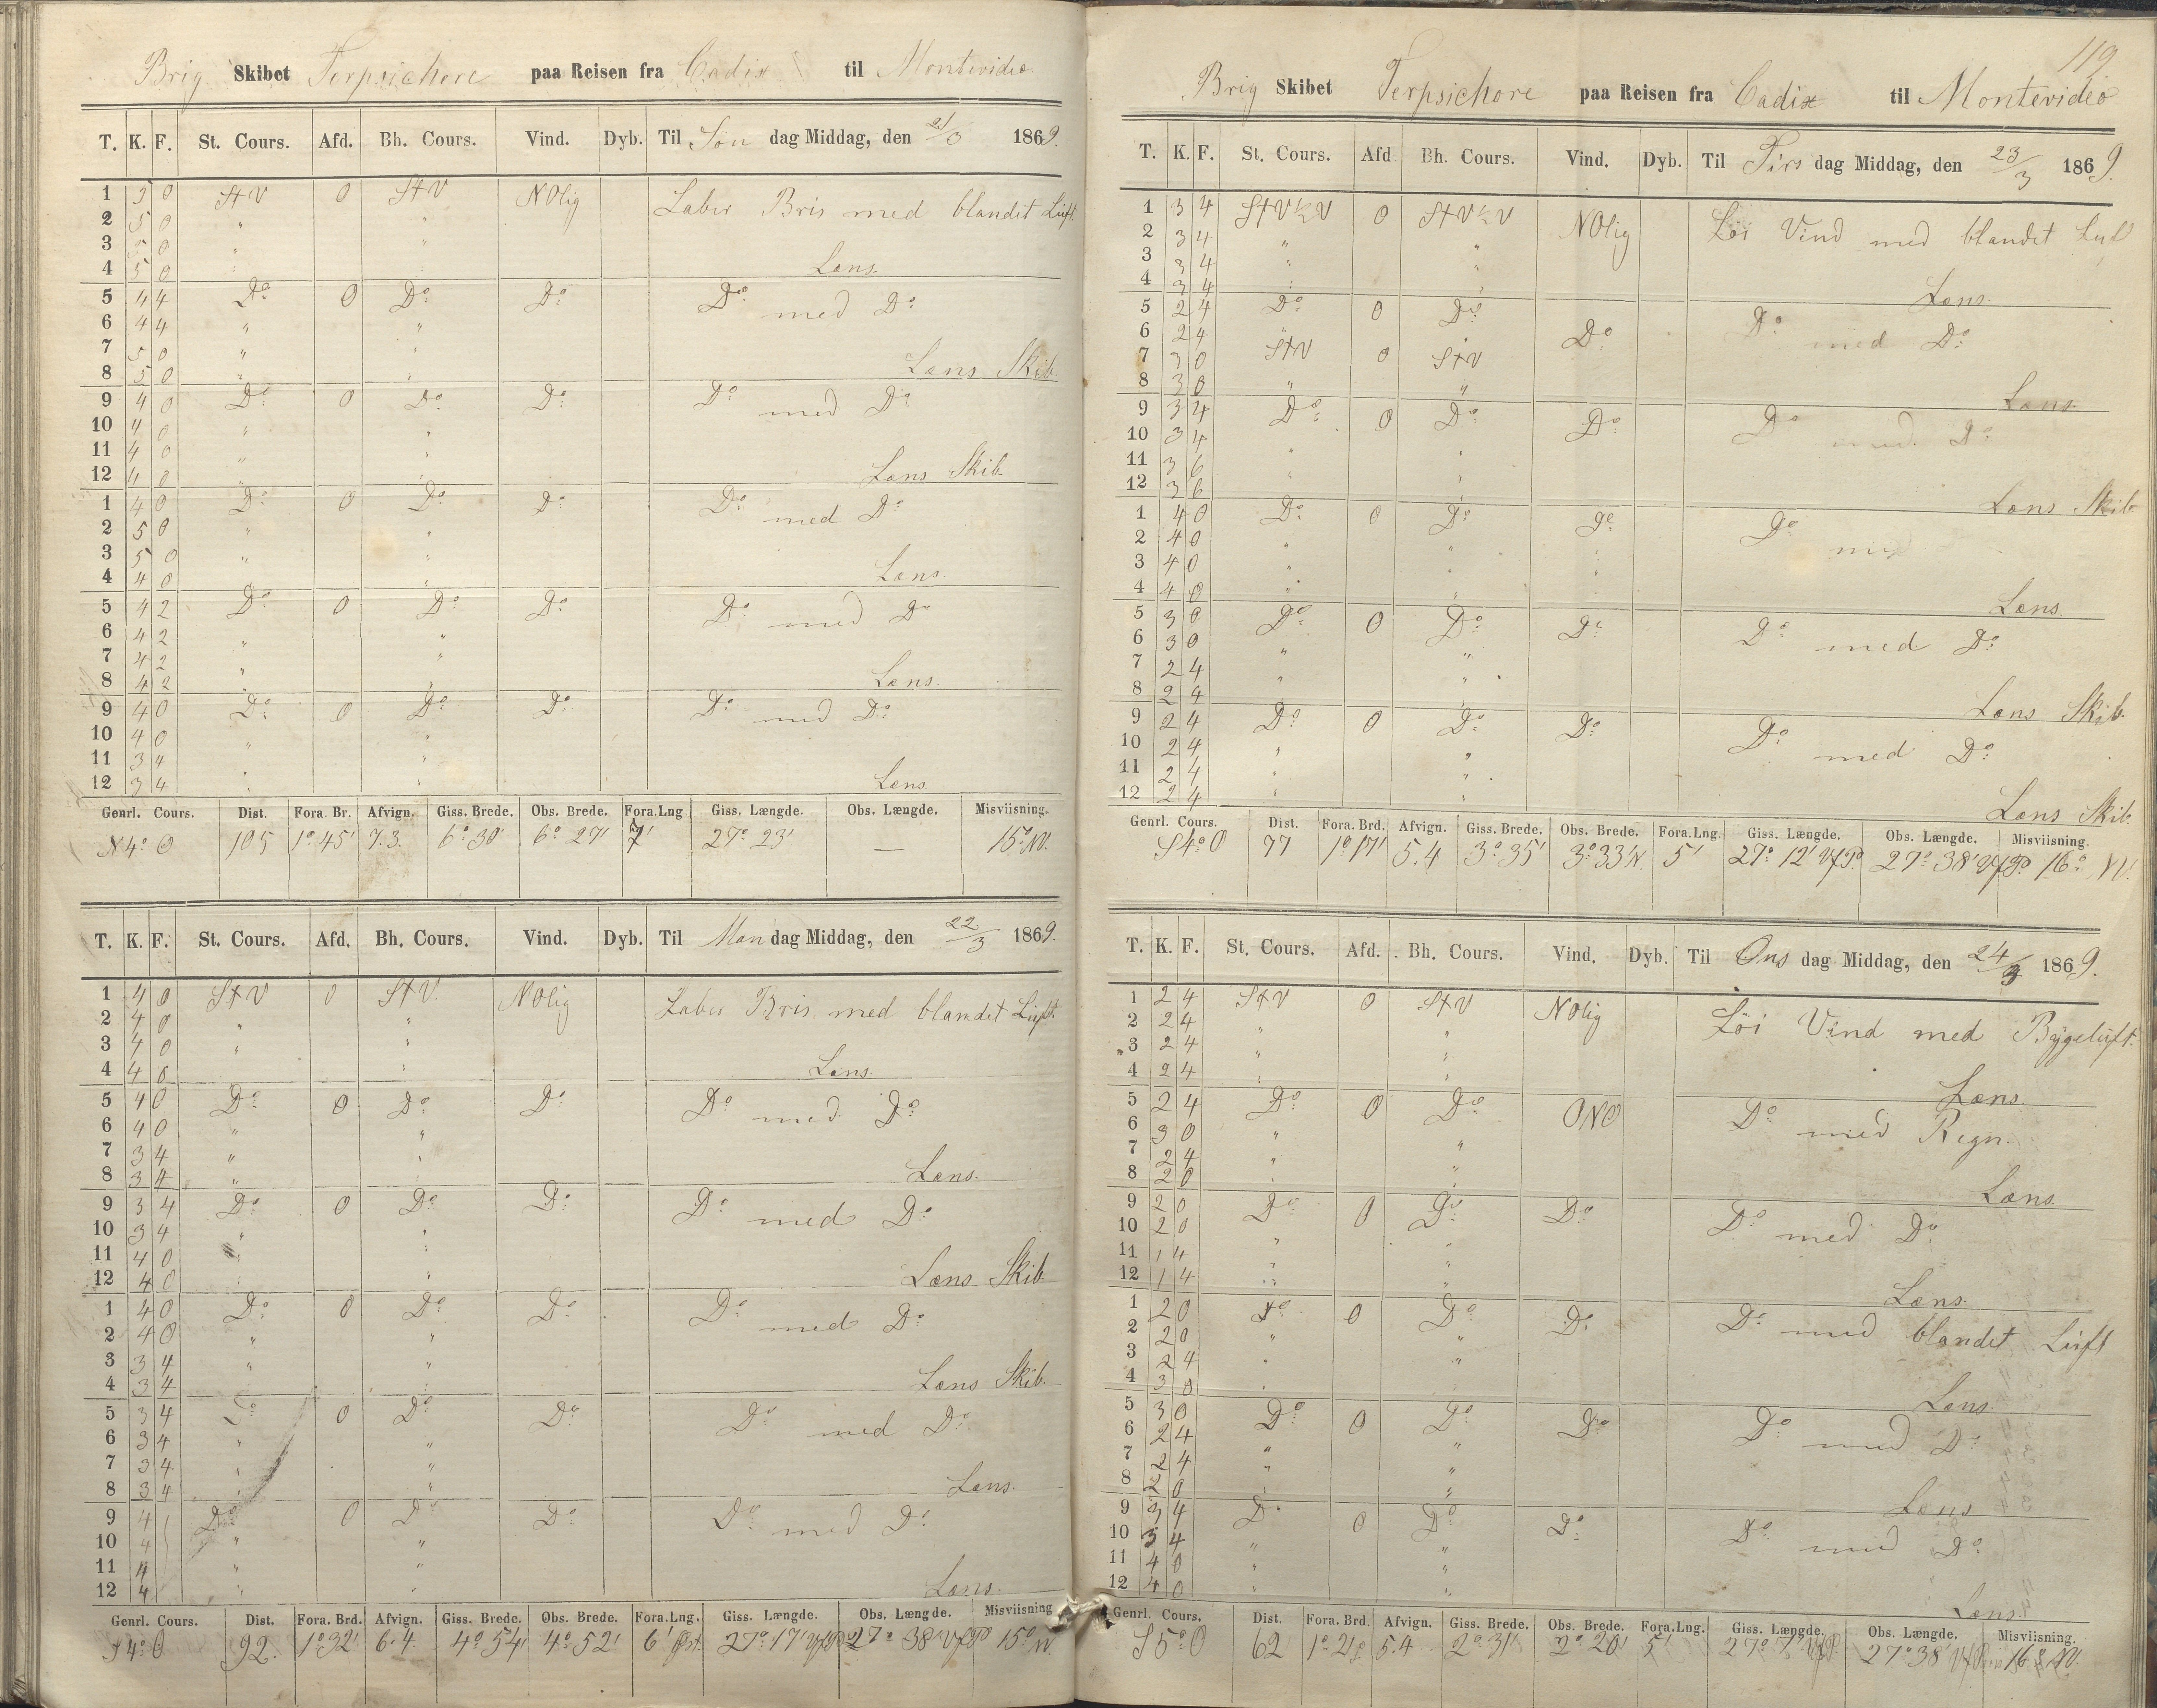 Brig Skibet Terpsichore paa Reisen fra Cadix til Montevideo
T. K. F. St. Cours. Afd. Bh. Cours. Vind. Dyb. Til Søn dag Middag, den 21/3 1869.
1 5 0 StV 0 StV NOlig Laber Bris med blandet Luft
2 5 0 " "
3 5 0 " "
4 5 0 " " Læns.
5 4 4 Do 0 Do Do Do med Do
6 4 4 " "
7 5 0 " "
8 5 0 " " Læns Skib.
9 4 0 Do 0 Do Do Do med Do
10 4 0 " "
11 4 0 " "
12 4 0 " " Læns Skib.
1 4 0 Do 0 Do Do Do med Do
2 5 0 " "
3 5 0 " "
4 4 0 " " Læns.
5 4 2 Do 0 Do Do Do med Do
6 4 2 " "
7 4 2 " "
8 4 2 " " Læns.
9 4 0 Do 0 Do Do Do med Do
10 4 0 " "
11 3 4 " "
12 3 4 " " Læns.
Genrl. Cours. Dist. Fora. Br. Afvign. Giss. Brede. Obs. Brede. Fora.Lng Giss. Længde. Obs. Længde. Misviisning.
105 1° 45' 7.3. 6° 30' 6° 27' 7' 27° 23' — 15° NV.
T. K. F. St. Cours. Afd. Bh. Cours. Vind. Dyb. Til Man dag Middag, den 22/3 1869.
1 4 0 StV 0 StV. NOlig Laber Bris med blandet Luft.
2 4 0 " "
3 4 0 " "
4 4 0 " Læns.
5 4 0 Do 0 Do Do Do med Do
6 4 0 " "
7 3 4 " "
8 3 4 " " Læns.
9 3 4 Do 0 Do Do Do med Do
10 3 4 " "
11 4 0 "
12 4 0 " " Læns Skib.
1 4 0 Do 0 Do Do Do med Do
2 4 0 " "
3 3 4 " "
4 3 4 Læns Skib.
5 3 4 Do 0 Do Do Do med Do
6 3 4 " "
7 3 4 " "
8 3 4 " " Læns.
9 4 Do 0 Do Do Do med Do
10 4 " "
11 4 " "
12 4 " " Læns.
Genrl. Cours. Dist. Fora. Brd. Afvign. Giss. Brede. Obs. Brede. Fora.Lng. Giss. Længde. Obs. Længde. Misviisning
S 4° O 92. 1° 32' 6.4. 4° 54' 4° 52' 6' 27° 17' 27° 38' 15°
119
Brig Skibet Terpsichore paa Reisen fra Cadix til Montevideo
T. K. F. St. Cours. Afd Bh. Cours. Vind. Dyb. Til Tirs dag Middag, den 23/3 1869.
1 3 4 StV½V 0 StV½V NOlig Løi Vind med blandet Luft
2 3 4 " "
3 3 4 " "
4 3 4 " " Læns.
5 2 4 Do 0 Do Do Do med Do
6 2 4 " "
7 3 0 StV 0 StV
8 3 0 " " Læns.
9 3 4 Do 0 Do Do Do med Do
10 3 4
11 3 6 " "
12 3 6 " " Læns Skib
1 4 0 Do 0 Do Do Do med
2 4 0 " "
3 4 0 " "
4 4 0 " " Læns.
5 3 0 Do 0 Do Do Do med Do
6 3 0
7 2 4 " "
8 2 4 " " Læns Skib.
9 2 4 Do 0 Do Do Do med Do
10 2 4 " "
11 2 4 " "
12 2 4 " " Læns Skib.
Genrl. Cours. Dist. Fora. Brd. Afvign. Giss. Brede. Obs. Brede. Fora.Lng. Giss. Længde. Obs. Længde. Misviisning.
S 4° O 77 1° 17' 5.4 3° 35' 3° 33' N. 5' 27° 12' 27° 38' 16° NV.
T. K. F. St. Cours. Afd. Bh. Cours. Vind. Dyb. Til Ons dag Middag, den 24/3 1869.
1 2 4 StV 0 StV NOlig Løi Vind med Bygeluft.
2 2 4 " "
3 2 4 " "
4 2 4 " " Læns.
5 2 4 Do 0 Do ONO Do med Regn.
6 3 0 " "
7 2 4 " "
8 2 0 " " Læns.
9 2 0 Do 0 Do Do Do med Do
10 2 0
11 1 4 " "
12 1 4 " " Læns.
1 2 0 Do 0 Do Do Do med blandet Luft
2 2 0 " "
3 2 4 " "
4 3 0 Læns.
5 3 0 Do 0 Do Do Do med Do
6 2 4 " "
7 2 4 " "
8 2 0 " " Læns
9 3 4 Do 0 Do Do Do med Do
10 3 4 " "
11 4 0 " "
12 4 0 " " Læns.
Genrl. Cours. Dist. Fora. Brd. Afvign. Giss. Brede. Obs. Brede. Fora.Lng. Giss. Længde. Obs. Længde. Misviisning.
S 5° O 62 5.4 2° 31' 2° 20' 5' 27° 7' 27° 38'